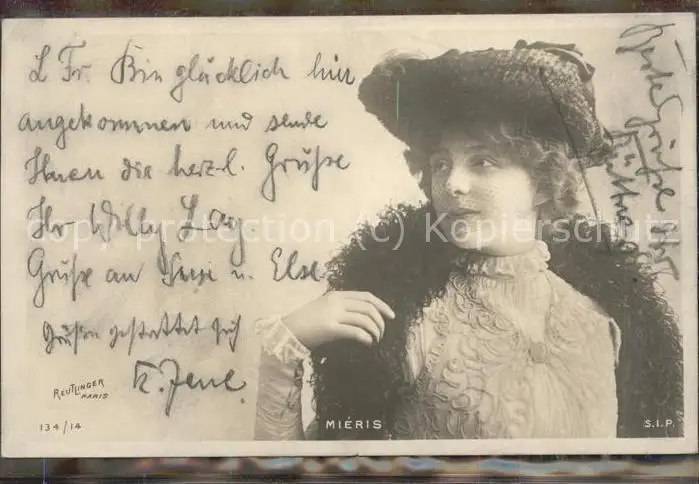 L Fr. Bin glücklich hier
angekommen und sende
Ihnen die herzl. Grüße
Ihr Willy Lay.
Grüße an Susi u. Else
Grüßen gestattet sich
K. Jene
beste Grüße
REUTLINGER
PARIS
134/14
MIÉRIS
S.I.P.
copyright protection (c) by Picclickshops